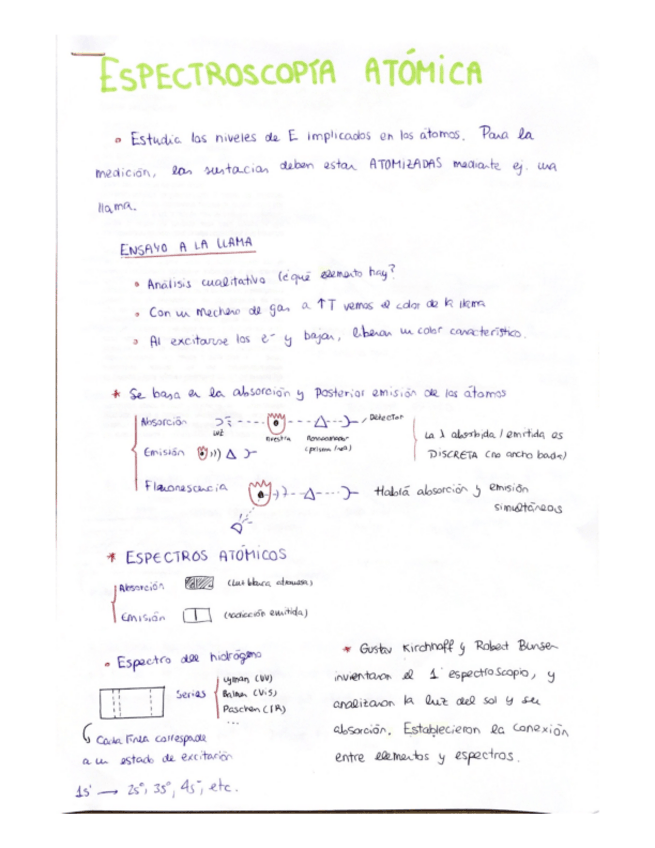 ESPECTROSCOPÍA ATÓMICA
Estudia los niveles de E implicados en los átomos. Para la
medición, las sustacias deben estar ATOMIZADAS mediante ej. una
llama.
ENSAYO A LA LLAMA
Análisis cualitativo (¿qué elemento hay?
Con un mechero de gas a ↑T vemos el color de la llama
Al excitarse los e- y bajar, liberan un color característico.
* Se basa en la absorción y posterior emisión de los átomos
Absorción
Detector
luz
muestra
Monocromador
(prisma/red)
La λ absorbida / emitida es
DISCRETA (no ancho banda)
Emisión
Fluorescencia
Habrá absorción y emisión
simultáneas
* ESPECTROS ATÓMICOS
Absorción (Luz blanca atenuada)
Emisión (radiación emitida)
Espectro del hidrógeno
Series
Lyman (UV)
Balmer (Vis)
Paschen (IR)
...
Cada línea corresponde
a un estado de excitación
1s¹ → 2s⁰, 3s⁰, 4s⁰, etc.
* Gustav Kirchhoff y Robert Bunsen
invientaron el 1º espectroscopio, y
analizaron la luz del sol y su
absorción. Establecieron la conexión
entre elementos y espectros.